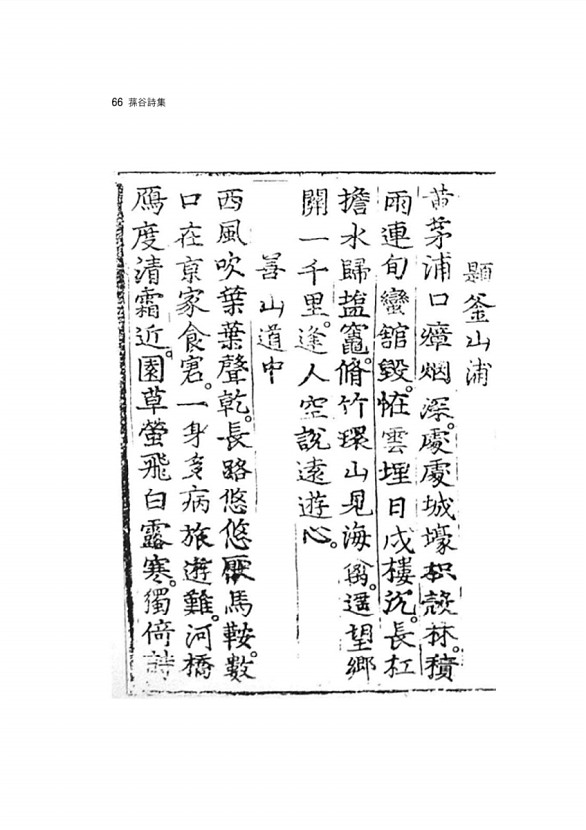 66 蓀谷詩集
題釜山浦
黄茅浦口瘴烟深。處處城壕枳殼林。積
雨連旬蠻舘毀。恠雲埋日戍樓沉。長杠
擔水歸塩竈。脩竹環山見海禽。遥望鄉
關一千里。逢人空說遠遊心。
善山道中
西風吹葉葉聲乾。長路悠悠厭馬鞍。數
口在京家食窘。一身多病旅遊難。河橋
鴈度清霜近。園草螢飛白露寒。獨倚詩